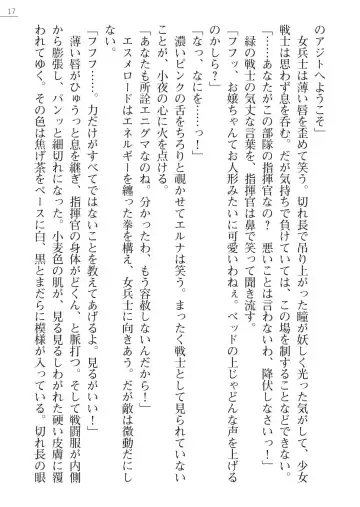 17
のアジトへようこそ」
女兵士は薄い唇を歪めて笑う。切れ長で吊り上がった瞳が妖しく光った気がして、少女
戦士は思わず息を呑む。だが気持ちで負けていては、この場を制することなどできない。
「……あなたがこの部隊の指揮官なの？　悪いことは言わないわ、降伏しなさいっ！」
緑の戦士の気丈な言葉を、指揮官は鼻で笑って聞き流す。
「フフッ、お嬢ちゃんてお人形みたいに可愛いわねぇ。ベッドの上じゃどんな声を上げる
のかしら？」
「なっ、なにを……っ！」
濃いピンクの舌をちろりと覗かせてエルナは笑う。まったく戦士として見られていない
ことが、小夜の心に火を点ける。
「あなたも所詮エニグマなのね。分かったわ、もう容赦しないんだから！」
エスメロードはエネルギーを纏った拳を構え、女兵士に向きあう。だが敵は微動だにし
ない。
「フフフ……。力だけがすべてではないことを教えてあげるよ。見るがいい！」
薄い唇がひゅうっと息を吐くと、指揮官の身体がどくん、と脈打つ。そして戦闘服が内側
から膨張し、パンッと細切れになった。小麦色の肌が、見る見るしわがれた硬い皮膚に覆
われてゆく。その色は焦げ茶をベースに白、黒とまだらに模様が入っていた。切れ長の眼